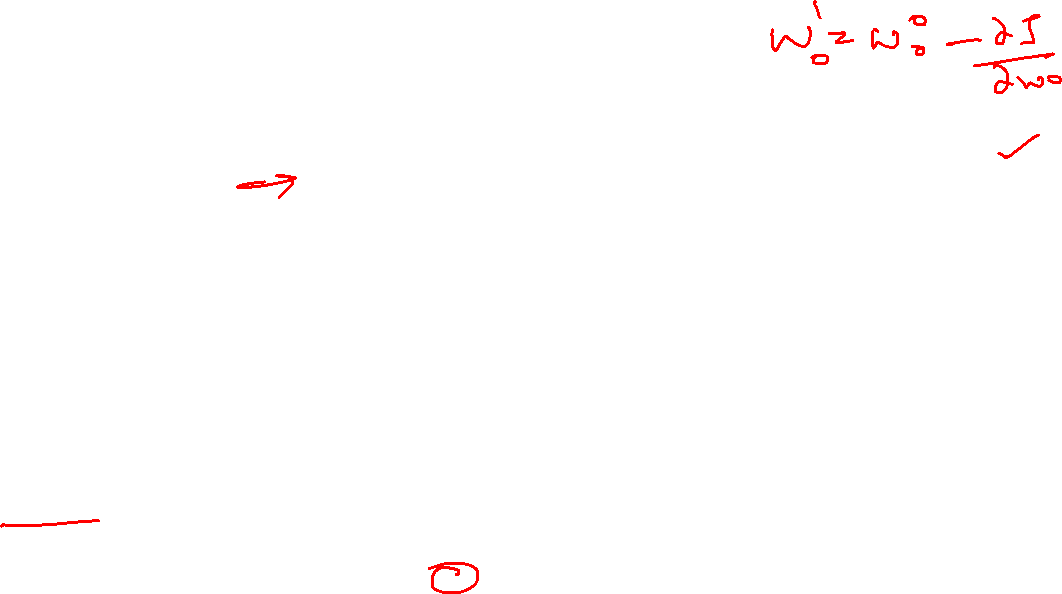 w₀¹ = w₀⁰ - ∂J/∂w₀